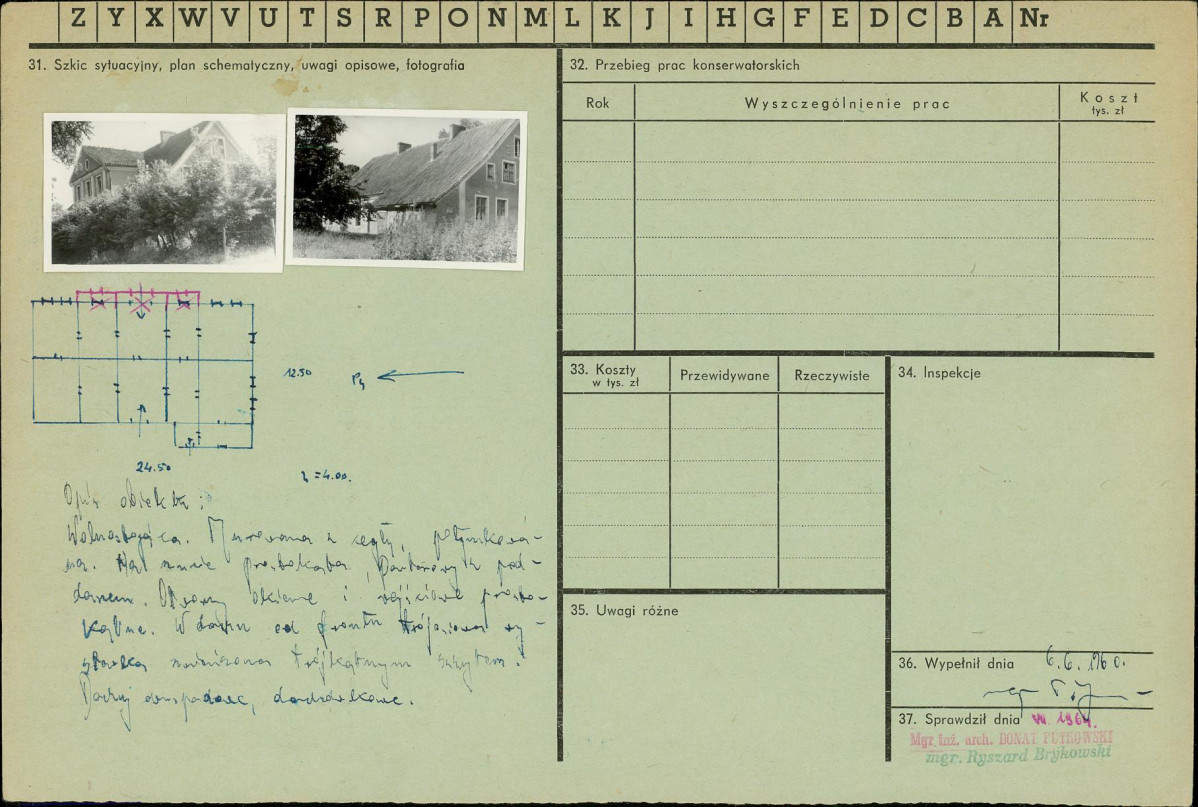 Z Y X W V U T S R P O N M L K J I H G F E D C B A Nr
31. Szkic sytuacyjny, plan schematyczny, uwagi opisowe, fotografia
12.50
Pn
24.50
h = 4.00.
Opis obiektu :
Wolnostojąca. Murowana z cegły, potynkowa-
na. Na rzucie prostokąta, parterowy z pod-
daszem. Otwory okienne i wejściowe prosto-
kątne. W dachu od frontu trójosiowa wy-
stawka zwieńczona trójkątnym szczytem.
Dachy dwuspadowe, dachówkowe.
32. Przebieg prac konserwatorskich
Rok
Wyszczególnienie prac
Koszt
tys. zł
33. Koszty
w tys. zł
Przewidywane
Rzeczywiste
34. Inspekcje
35. Uwagi różne
36. Wypełnił dnia 6.6.1960.
mgr
37. Sprawdził dnia VII. 1964.
Mgr inż. arch. DONAT PUTKOWSKI
mgr. Ryszard Brykowski